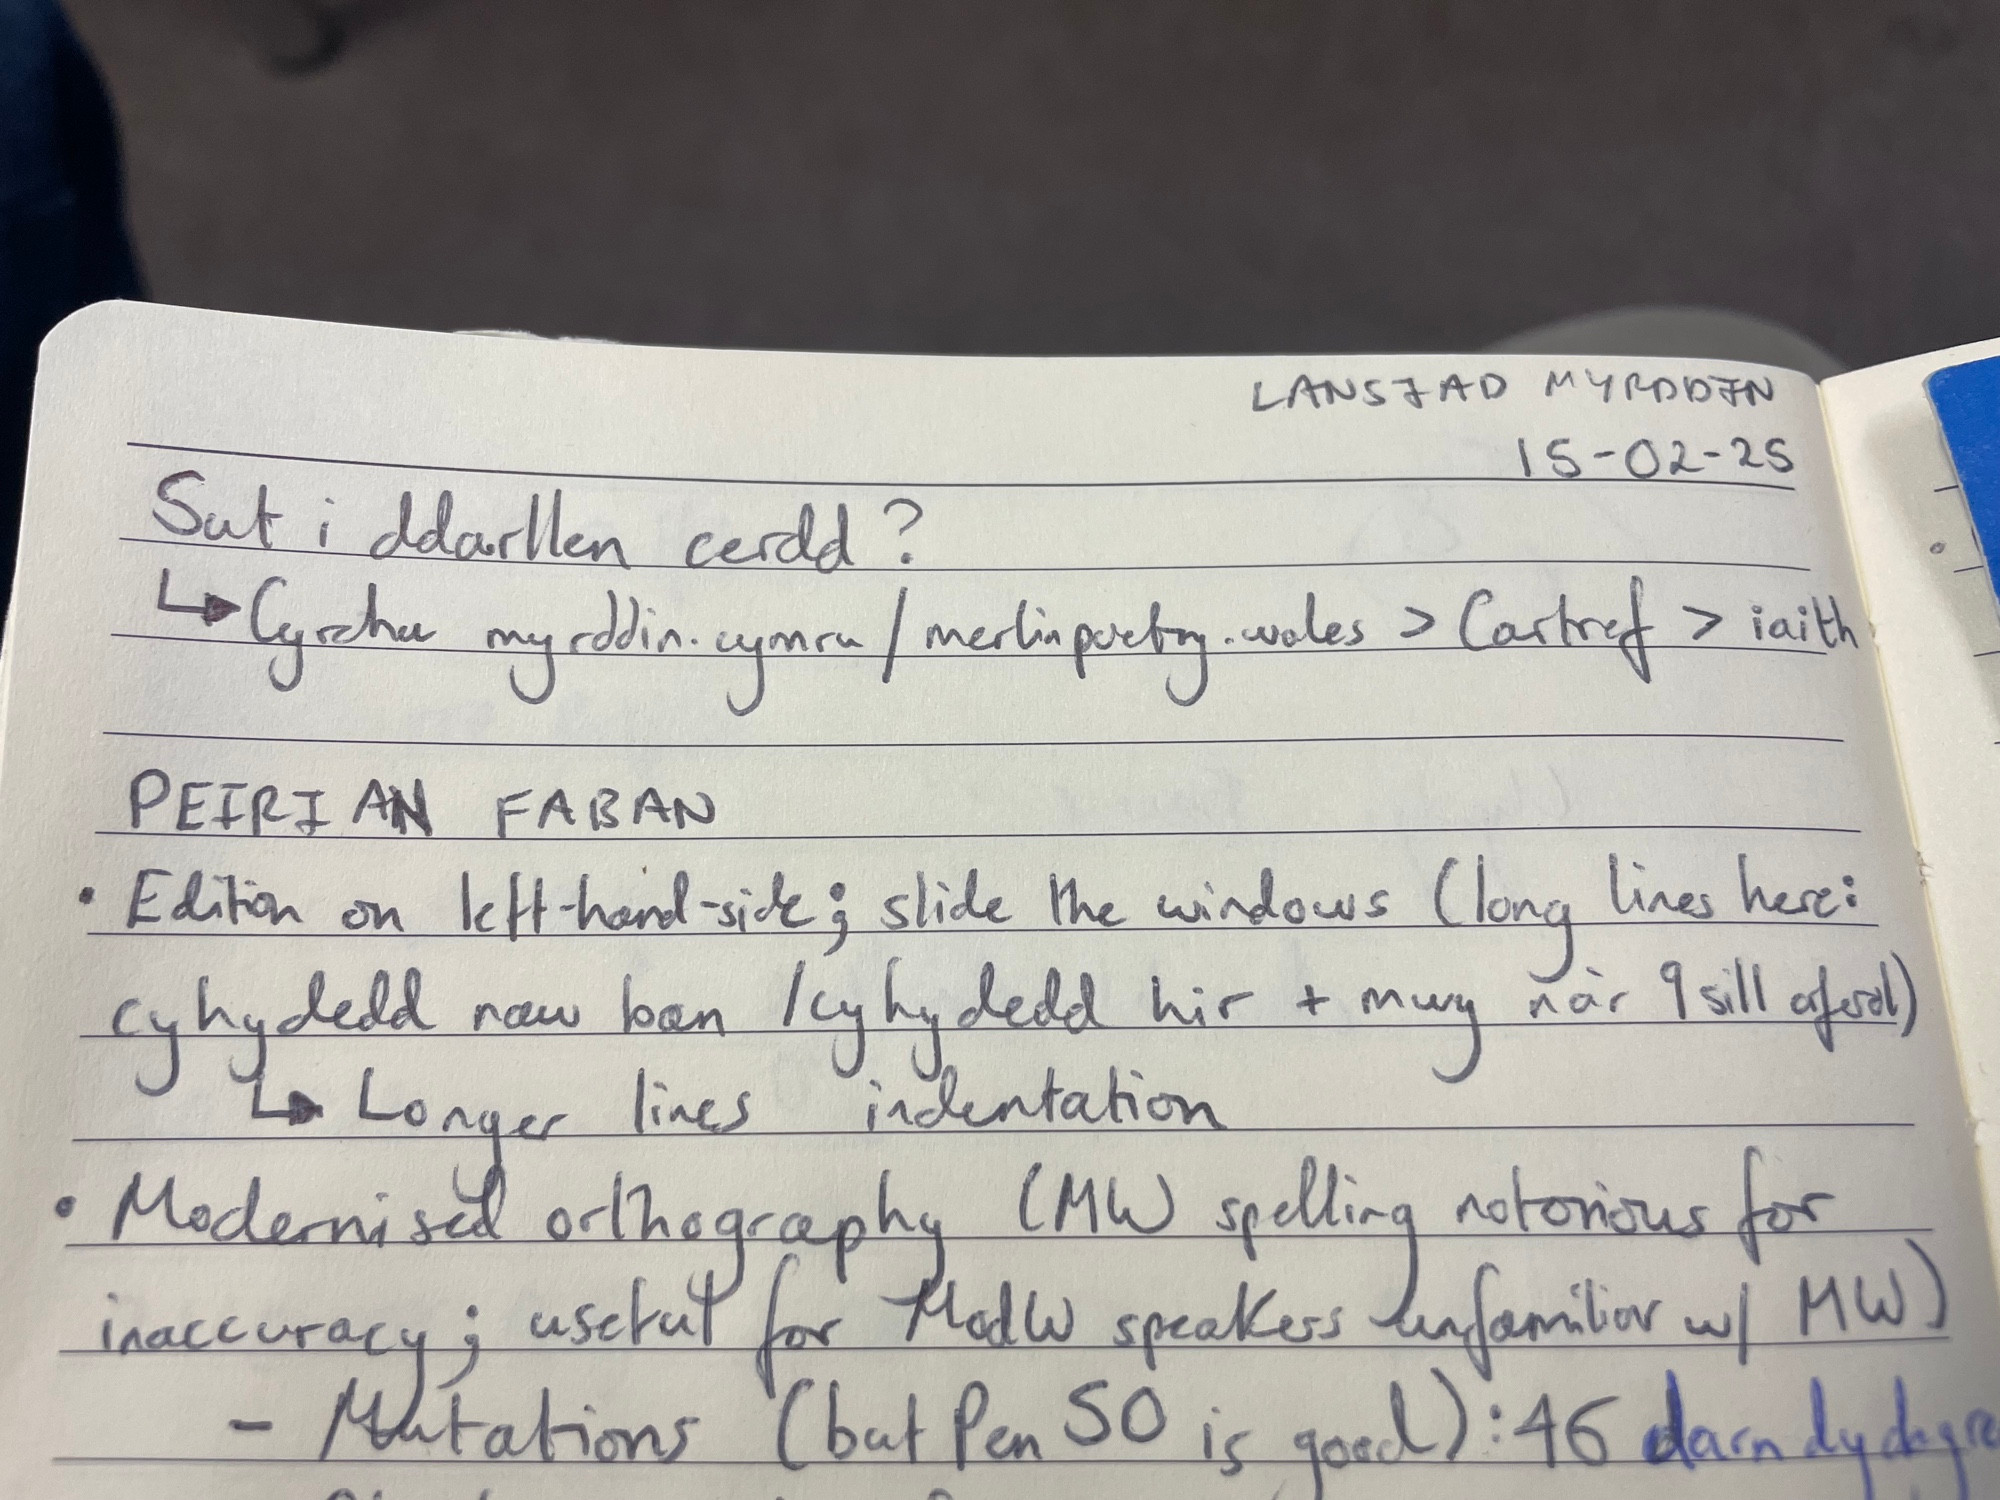 LANSIAD MYRDDIN
15-02-25
Sut i ddarllen cerdd?
↳ Cyrchu myrddin.cymru / merlinpoetry.wales > Cartref > iaith
PEIRIAN FABAN
• Edition on left-hand-side; slide the windows (long lines here:
cyhydedd naw ban / cyhydedd hir + mwy nàr 9 sill aferol)
↳ Longer lines indentation
• Modernised orthography (MW spelling notorious for
inaccuracy; useful for ModW speakers unfamiliar w/ MW)
- Mutations (but Pen 50 is good): 46 darn dy